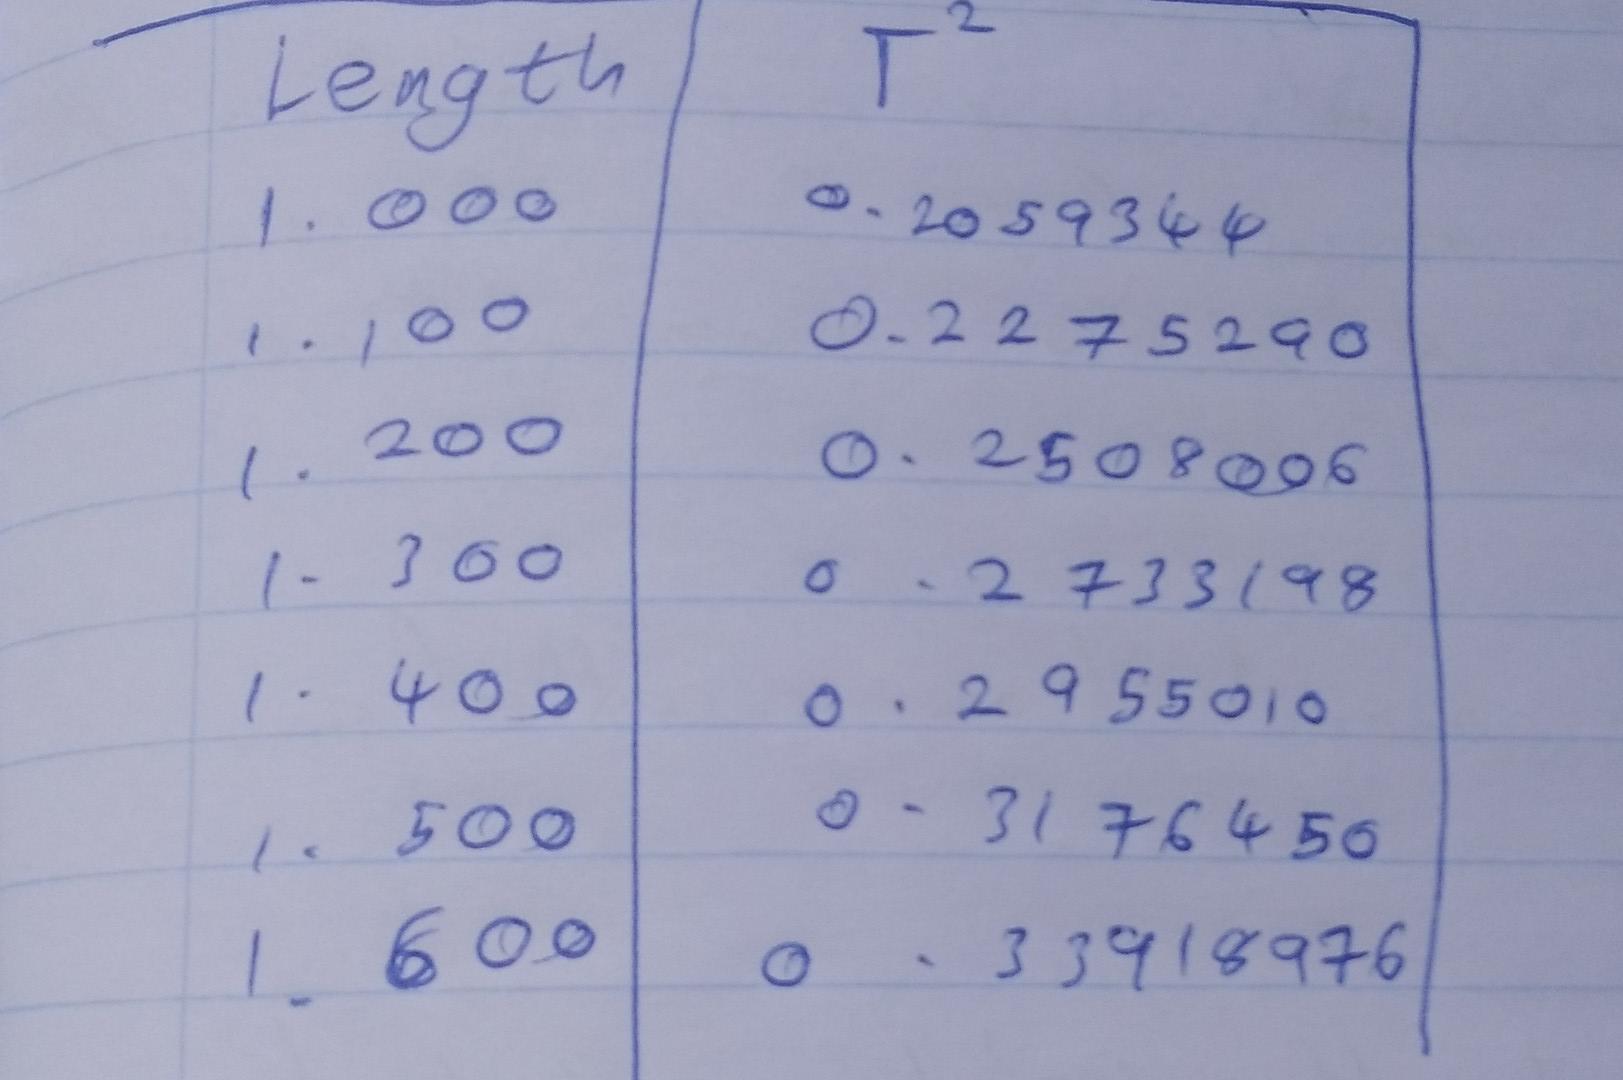 Length T²
1.000 0.2059344
1.100 0.2275290
1.200 0.2508006
1.300 0.2733198
1.400 0.2955010
1.500 0.3176450
1.600 0.33918976